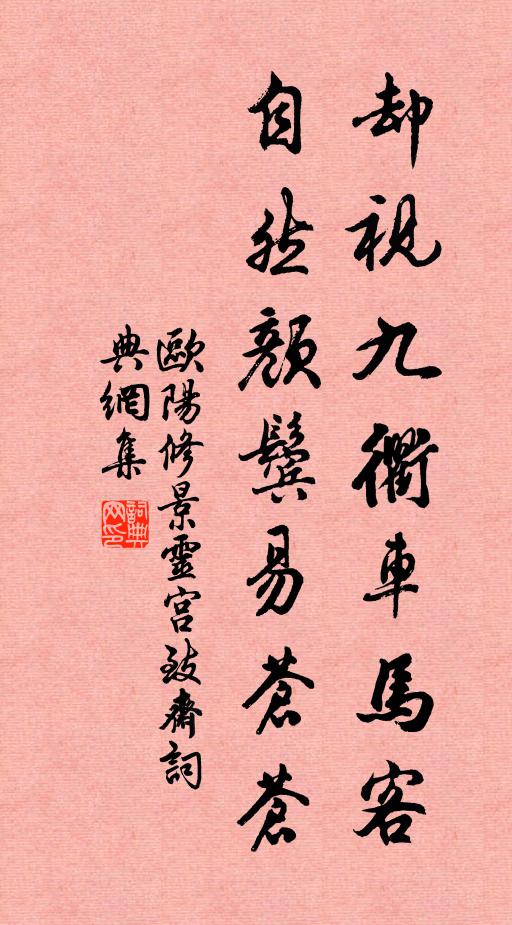 却視九衢車馬客
自然顏鬢易蒼蒼
歐陽修景靈宮致齋詞
典網集
詞典
网印